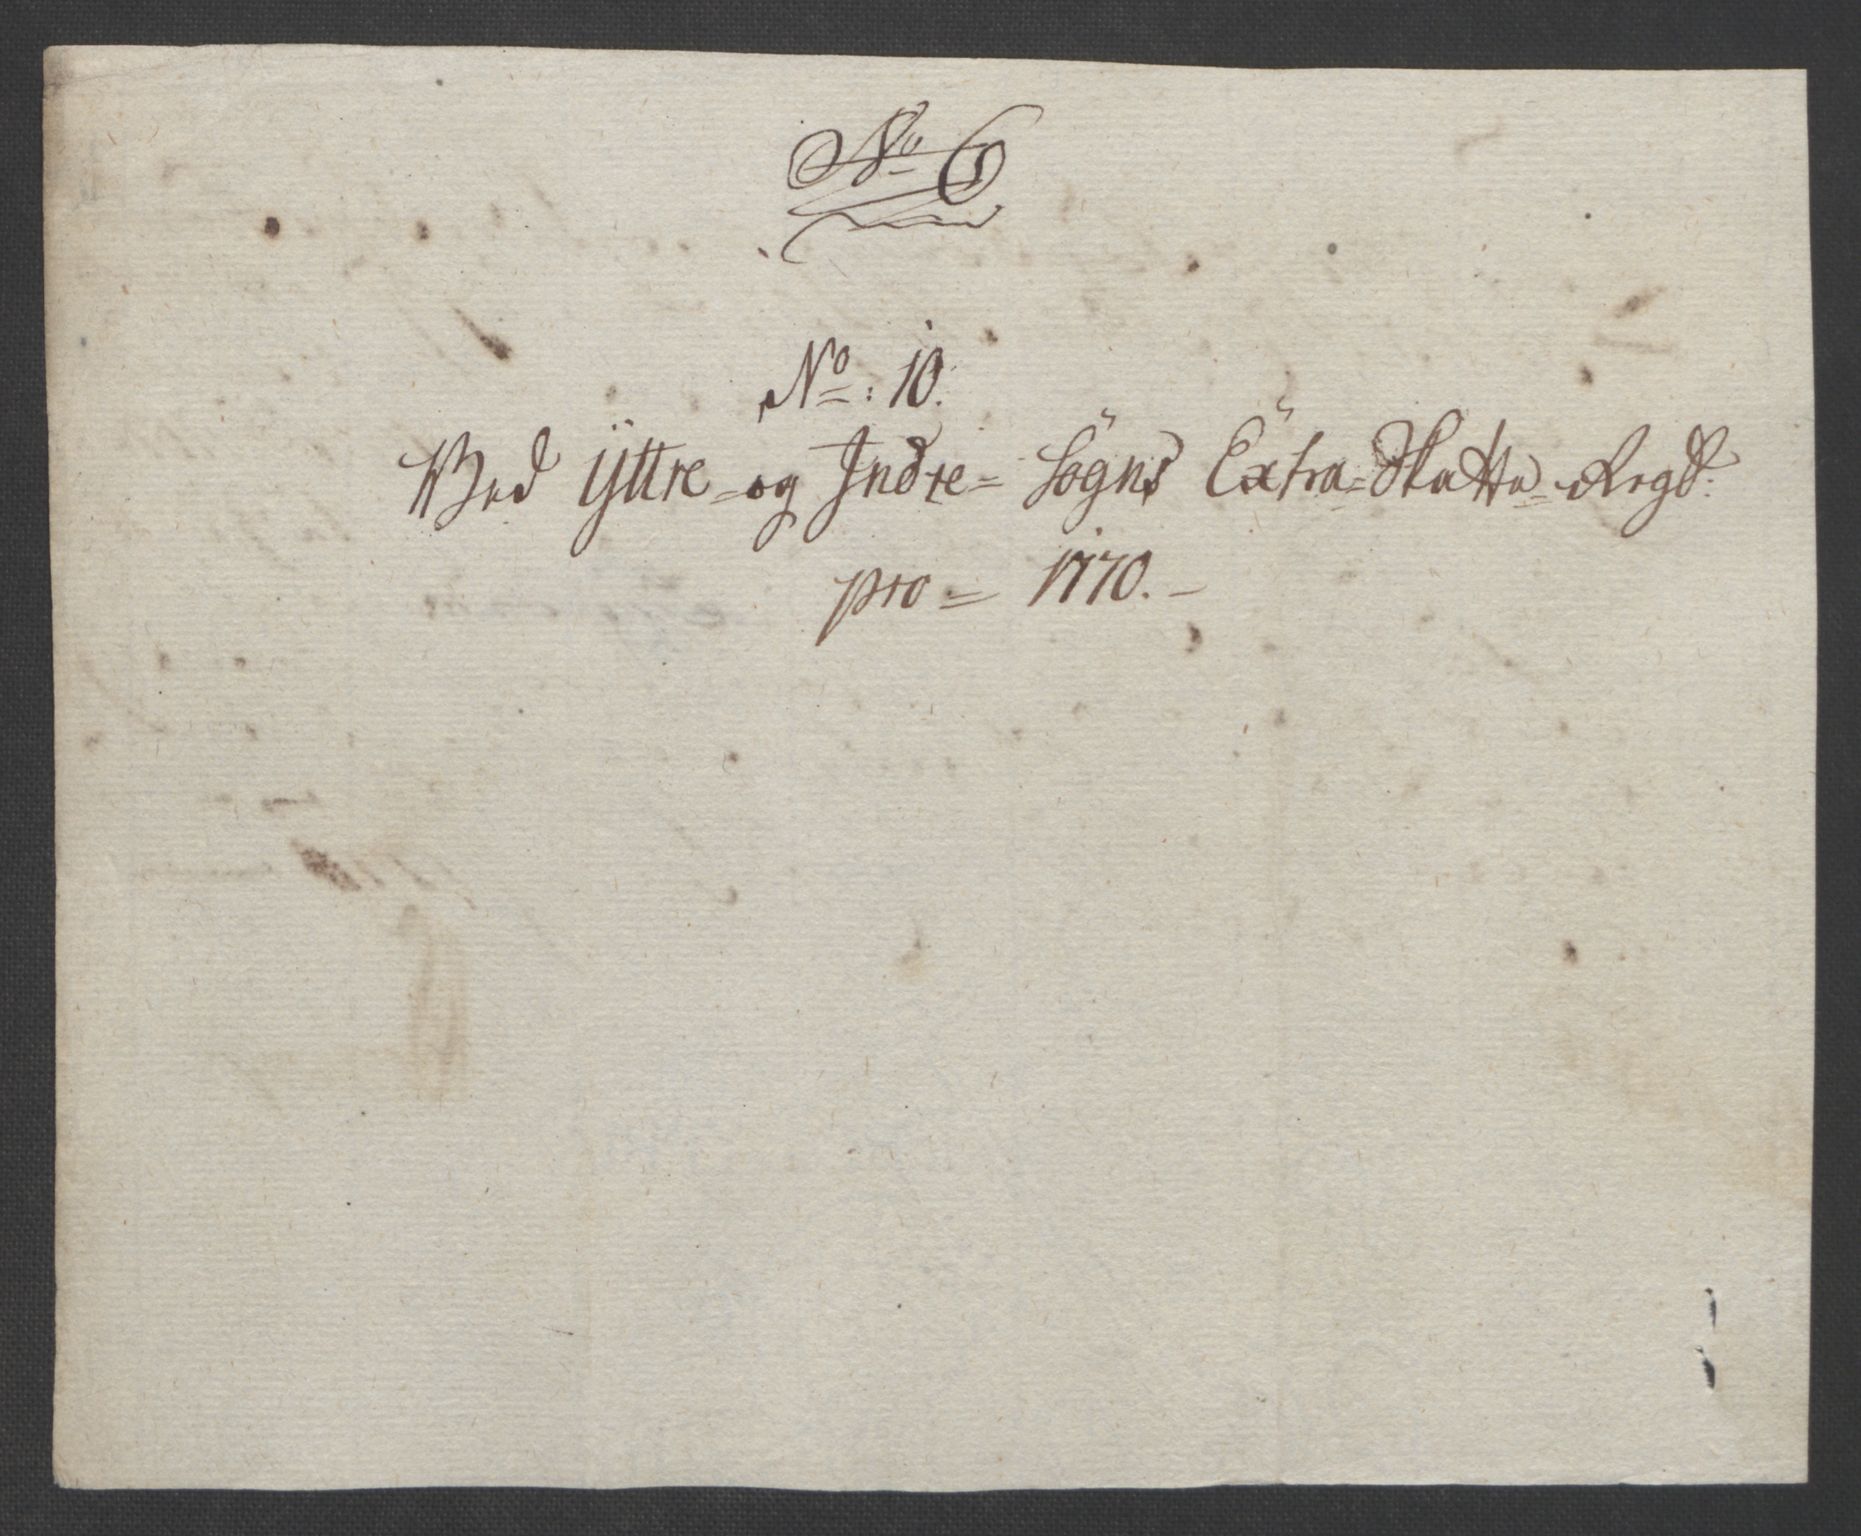 No 6
No: 10.
Ved Ÿttre- og Indre- Sogns Extra-Skatte-Regsk:
pro = 1770. -